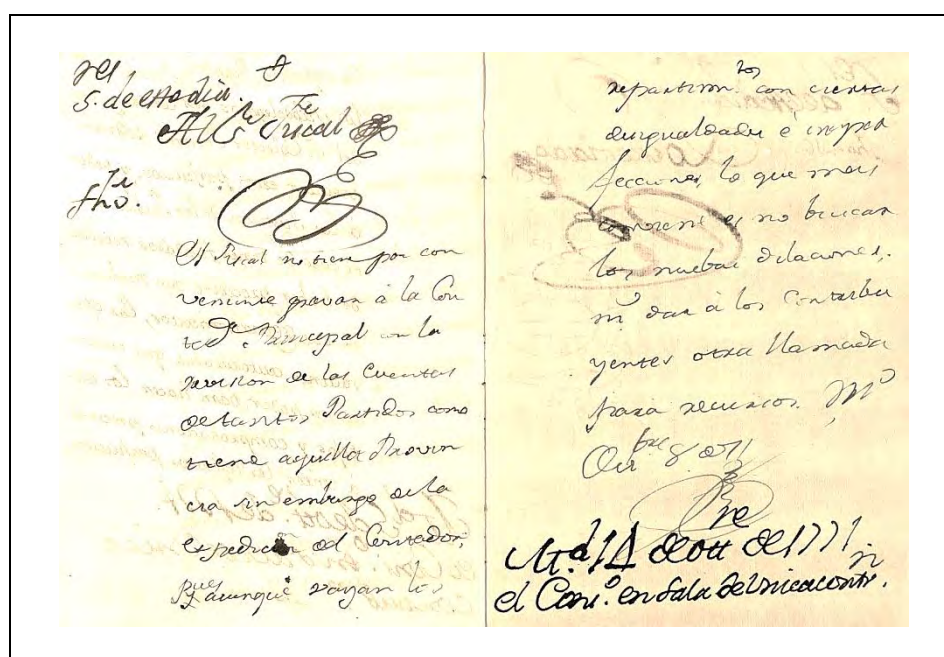 S. de este dia.
Al Sr Fiscal
fho.
El Fiscal no tiene por con
veniente gravar à la Con
tad.a Principal con la
revision de las Cuentas
de tantos Partidos como
tiene aquella Provin
cia sin embargo de la
del Contador,
pues aunque vayan los
repartim.tos con ciertas
desigualdades è imper
fecciones, lo que mas
es no buscar
les nuebas dilaciones,
ni dar à los Contribu
yentes otra llamada
para recursos. M.d
Oct.bre 8 de 71
M.d 14 de ott.e de 1771.
el Cons.o en Sala de